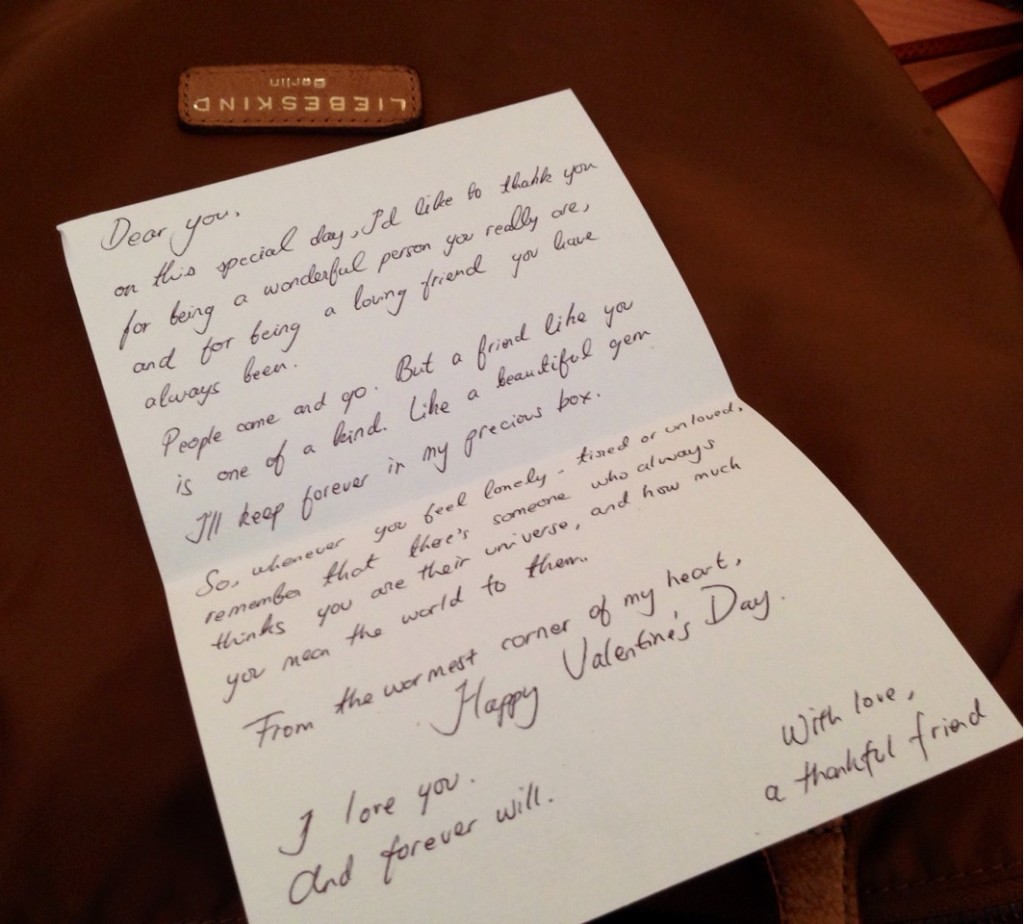 LIEBESKIND
Berlin
Dear you,
on this special day, I'd like to thank you
for being a wonderful person you really are,
and for being a loving friend you have
always been.
People come and go. But a friend like you
is one of a kind. Like a beautiful gem
I'll keep forever in my precious box.
So, whenever you feel lonely - tired or unloved,
remember that there's someone who always
thinks you are their universe, and how much
you mean the world to them.
From the warmest corner of my heart,
Happy Valentine's Day.
With love,
a thankful friend
I love you.
And forever will.